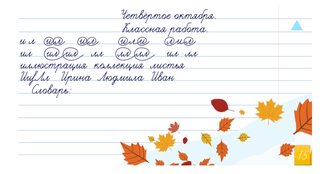 Четвёртое октября.
Классная работа.
и л ил ил или лил
ил ил ил лл лл лл ил лл
иллюстрация коллекция листья
ИиЛл Ирина Людмила Иван
Словарь:
15